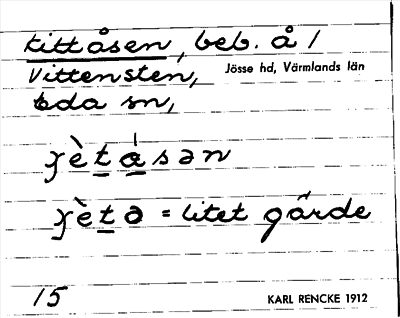 Kittåsen, beb. å /
Vittensten, Jösse hd, Värmlands län
Eda sn,
ɣètåsən
ɣètə = litet gärde
15 KARL RENCKE 1912